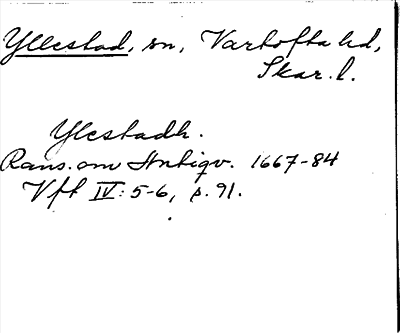 Yllestad, sn, Vartofta hd,
Skar. l.
Ylestadh.
Rans. om Antiqv. 1667-84
Vft IV: 5-6, p. 91.